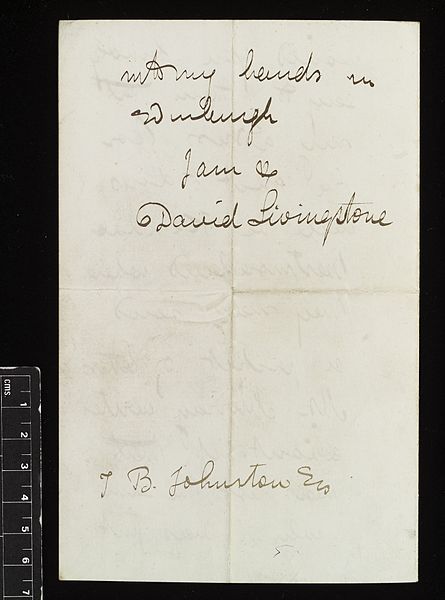 into my hands in
Edinburgh
I am &c
David Livingstone
T B. Johnston Esq
cms
1
2
3
4
5
6
7